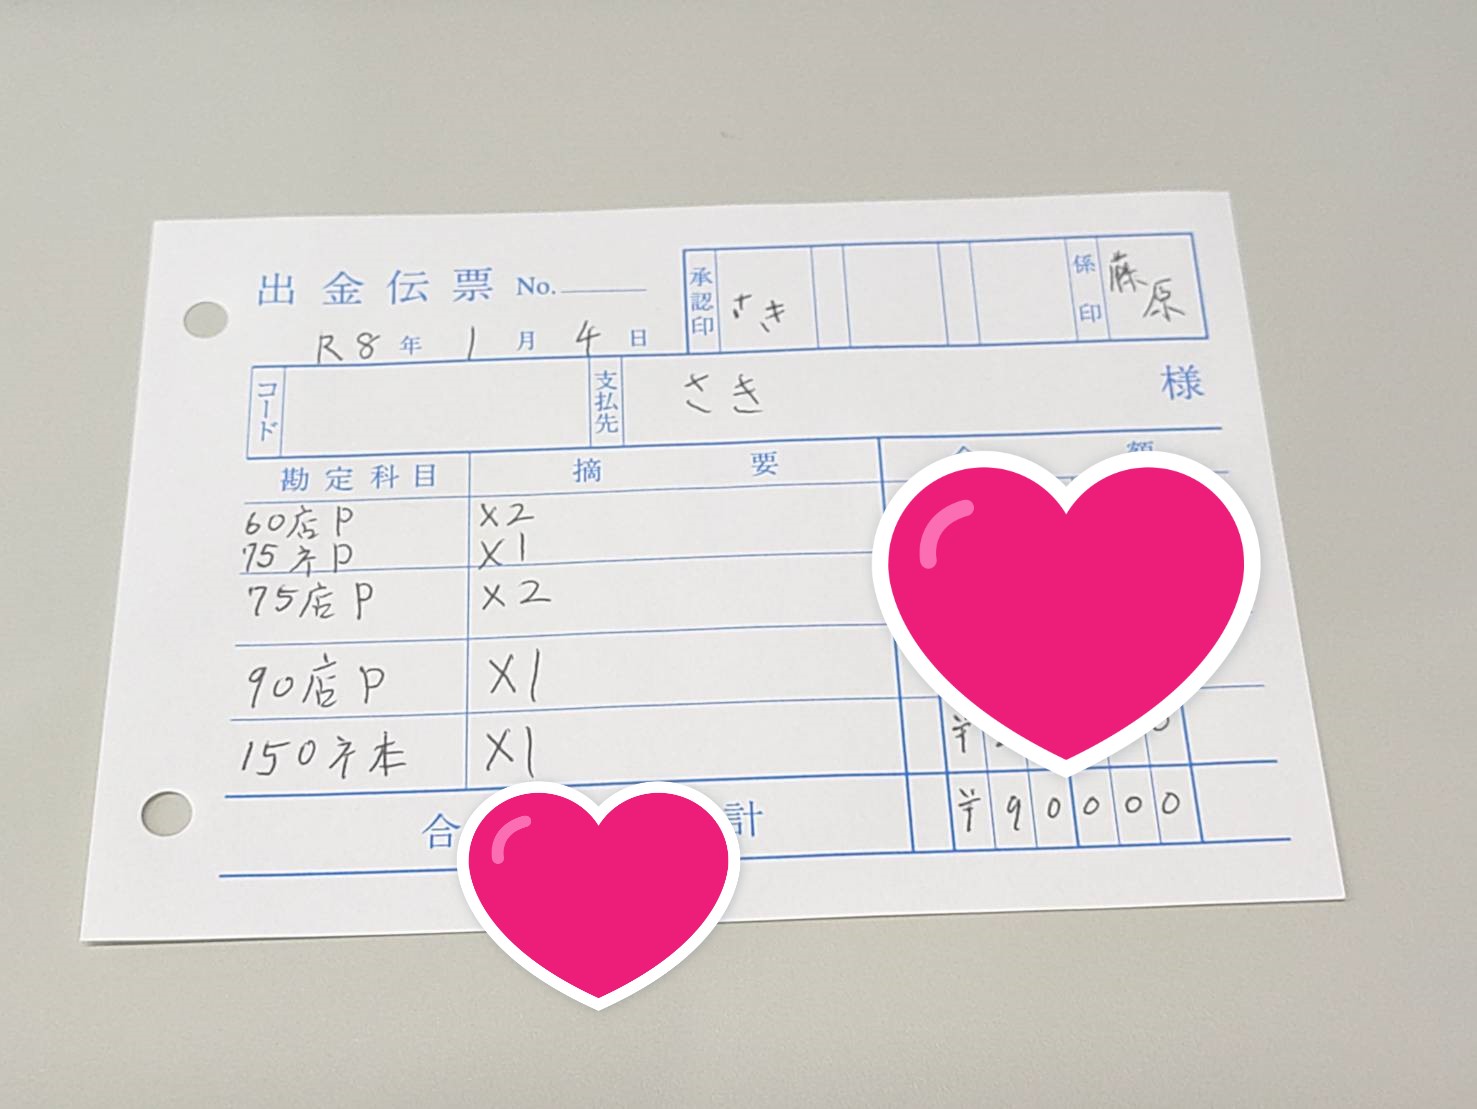 出金伝票 No.
R8年 1月 4日
承認印 さき 係印 藤原
コード 支払先 さき 様
勘定科目 摘要
60店P X2
75ネP X1
75店P X2
90店P X1
150ネ本 X1
合 計 ¥90000